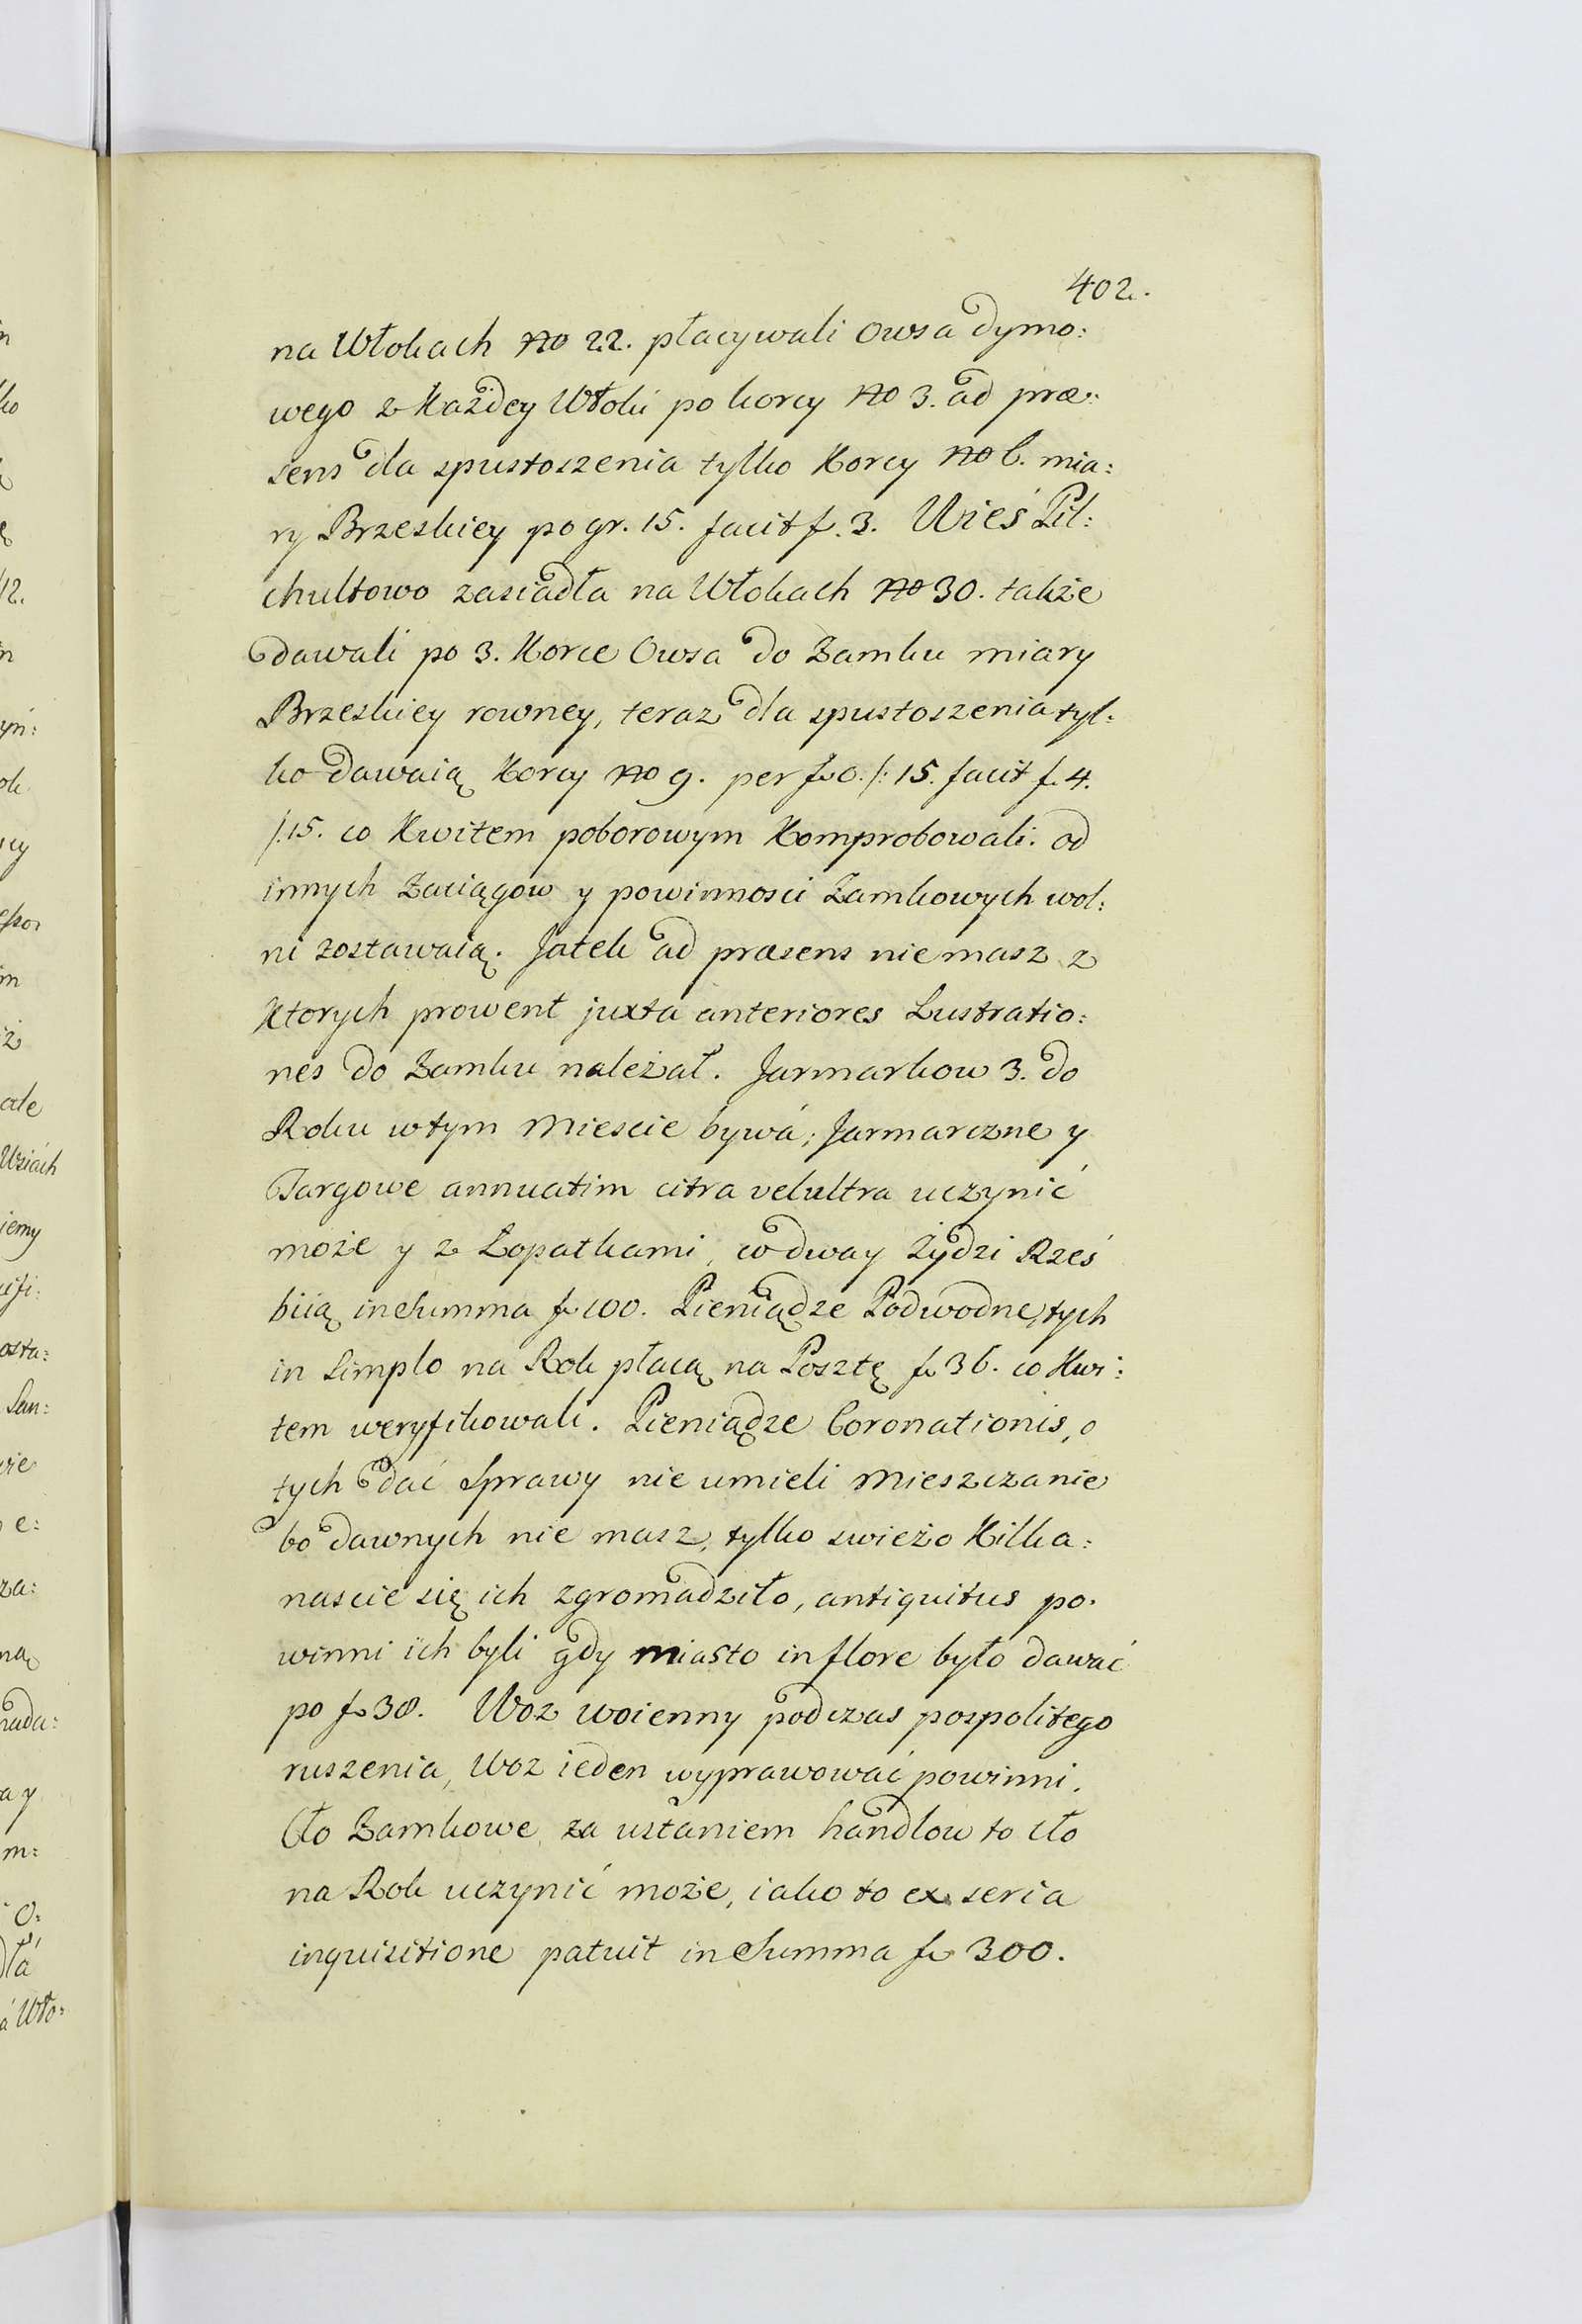 402.
na Włokach No 22. płacywali Owsa dymo:
wego z Każdey Włoki po korcy No 3. ad præ:
sens dla spustoszenia tylko Korcy No 6. mia:
ry Brzeskiey po gr. 15. facit f. 3. Wieś Pil:
chultowo zasiadła na Włokach No 30. także
dawali po 3. Korce Owsa do Zamku miary
Brzeskiey rowney, teraz dla spustoszenia tyl:
ko dawaią Korcy No 9. per f. 0. /: 15. facit f. 4.
/: 15. co Kwitem poborowym Komprobowali. od
innych Zaciągow y powinnosci Zamkowych wol:
ni zostawaią. Jatek ad præsens nie masz z
Ktorych prowent juxta anteriores Lustratio:
nes do Zamku należał. Jarmarkow 3. do
Roku w tym Miescie bywa; Jarmarczne y
Targowe annuatim citra vel ultra uczynić
może y z Łopatkami, co dway Żydzi Rześ
biią in Summa f. 100. Pieniądze Podwodne, tych
in Simplo na Rok płacą na Posztę f. 36. co Kwi:
tem weryfikowali. Pieniądze Coronationis, o
tych dać Sprawy nie umieli Mieszczanie
bo dawnych nie masz, tylko swieżo Kilka:
nascie się ich zgromadziło, antiquitus po:
winni ich byli gdy miasto in flore było dawać
po f. 38. Woz woienny podczas pospolitego
ruszenia, Woz ieden wyprawować powinni.
Cło Zamkowe, za ustaniem handlow to cło
na Rok uczynić może, iako to ex seria
inquisitione patuit in Summa f. 300.